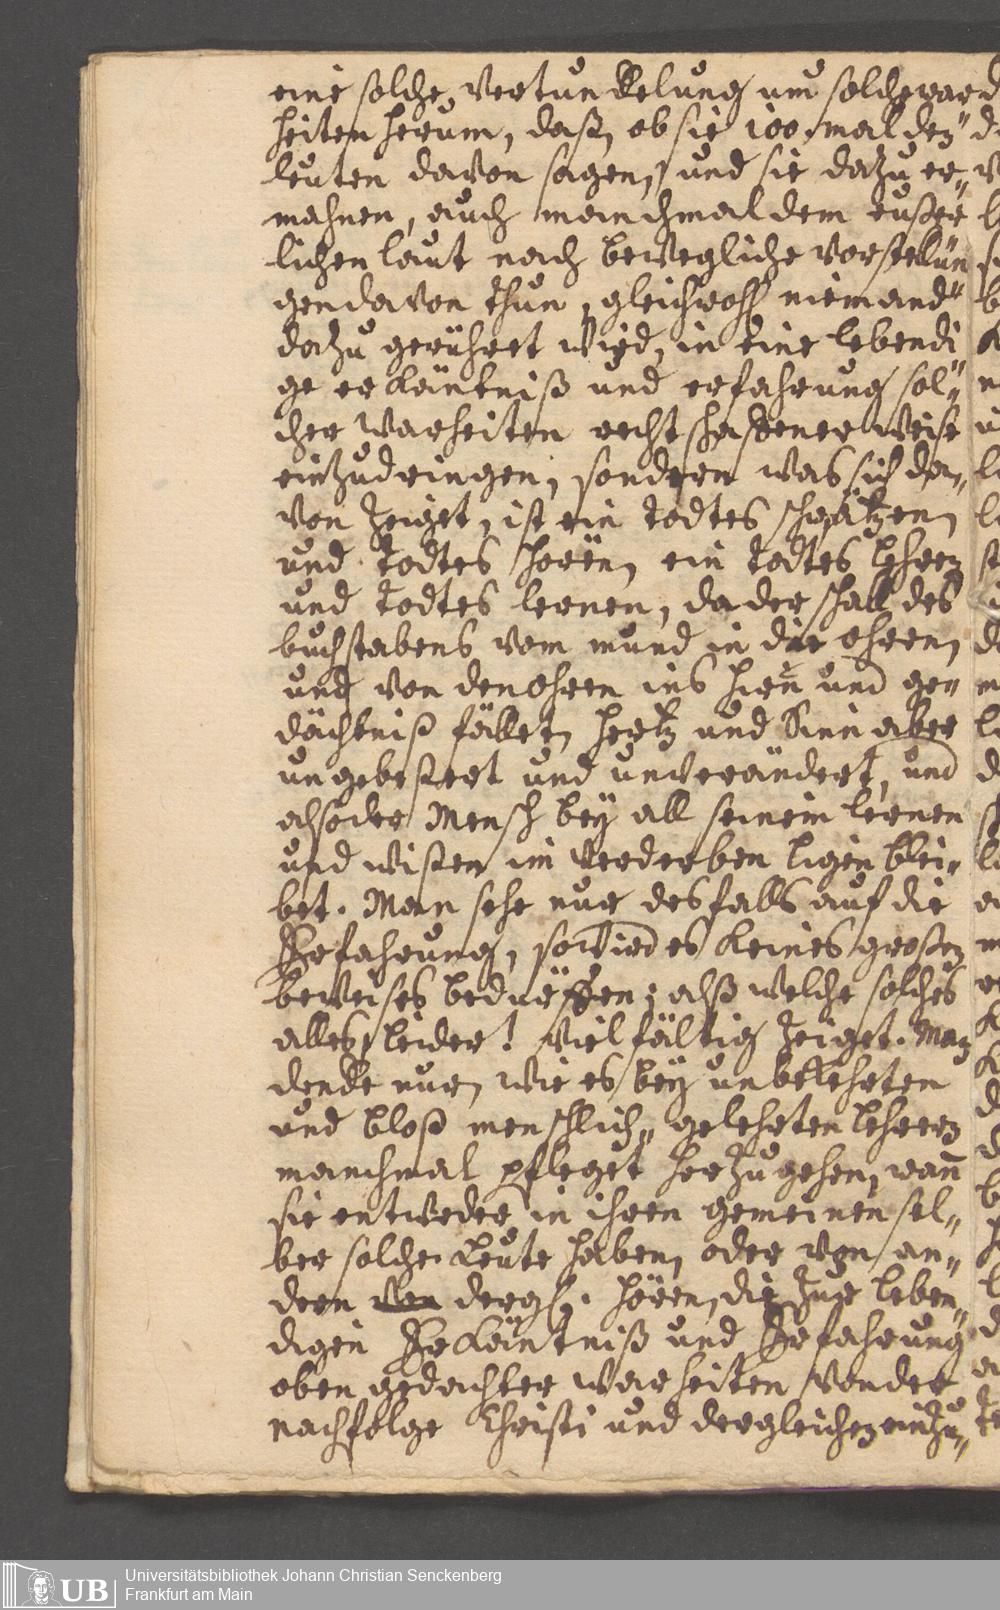 eine solche Vertunckelung um solche war
heiten herum, daß, ob sie 100. mal den
leuten davon sagen, und sie dazu er„
mahnen, auch manchmal dem eußer„
lichen laut nach bewegliche vorstellun
gen davon thun, gleichwohl niemand
dazu gerühret wird, in eine lebendi„
ge erkäntniß und erfahrung sol„
cher Warheiten rechtschaffener Weise
einzudringen, sondern was sich da„
von zeiget, ist ein todtes schwätzen,
und todtes hören, ein todtes lehren
und todtes lernen, da der schall des
buchstabens vom mund in die ohren,
und von den ohren ins hirn und ge„
dächtniß fället, hertz und Sinn aber
ungebeßert und unverändert, und
also der Mensch bey all seinem lernen
und wißen im Verderben ligen blei„
bet. Man sehe nur desfalls auf die
Erfahrung, so wird es keines großen
beweises bedürffen; alß welche solches
alles, leider! vielfältig zeiget. Man
dencke nur, wie es bey unbekehrten
und bloß menschlich„ gelehrten lehrern
manchmal pfleget herzugehen, wañ
sie entweder in ihren gemeinen sel„
ber solche Leute haben, oder von an„
dern dergl. hören, die zur leben„
digen Erkäntniß und Erfahrung
oben gedachter Warheiten von der
nachfolge Christi und dergleichen einzu„
Universitätsbibliothek Johann Christian Senckenberg
Frankfurt am Main
UB